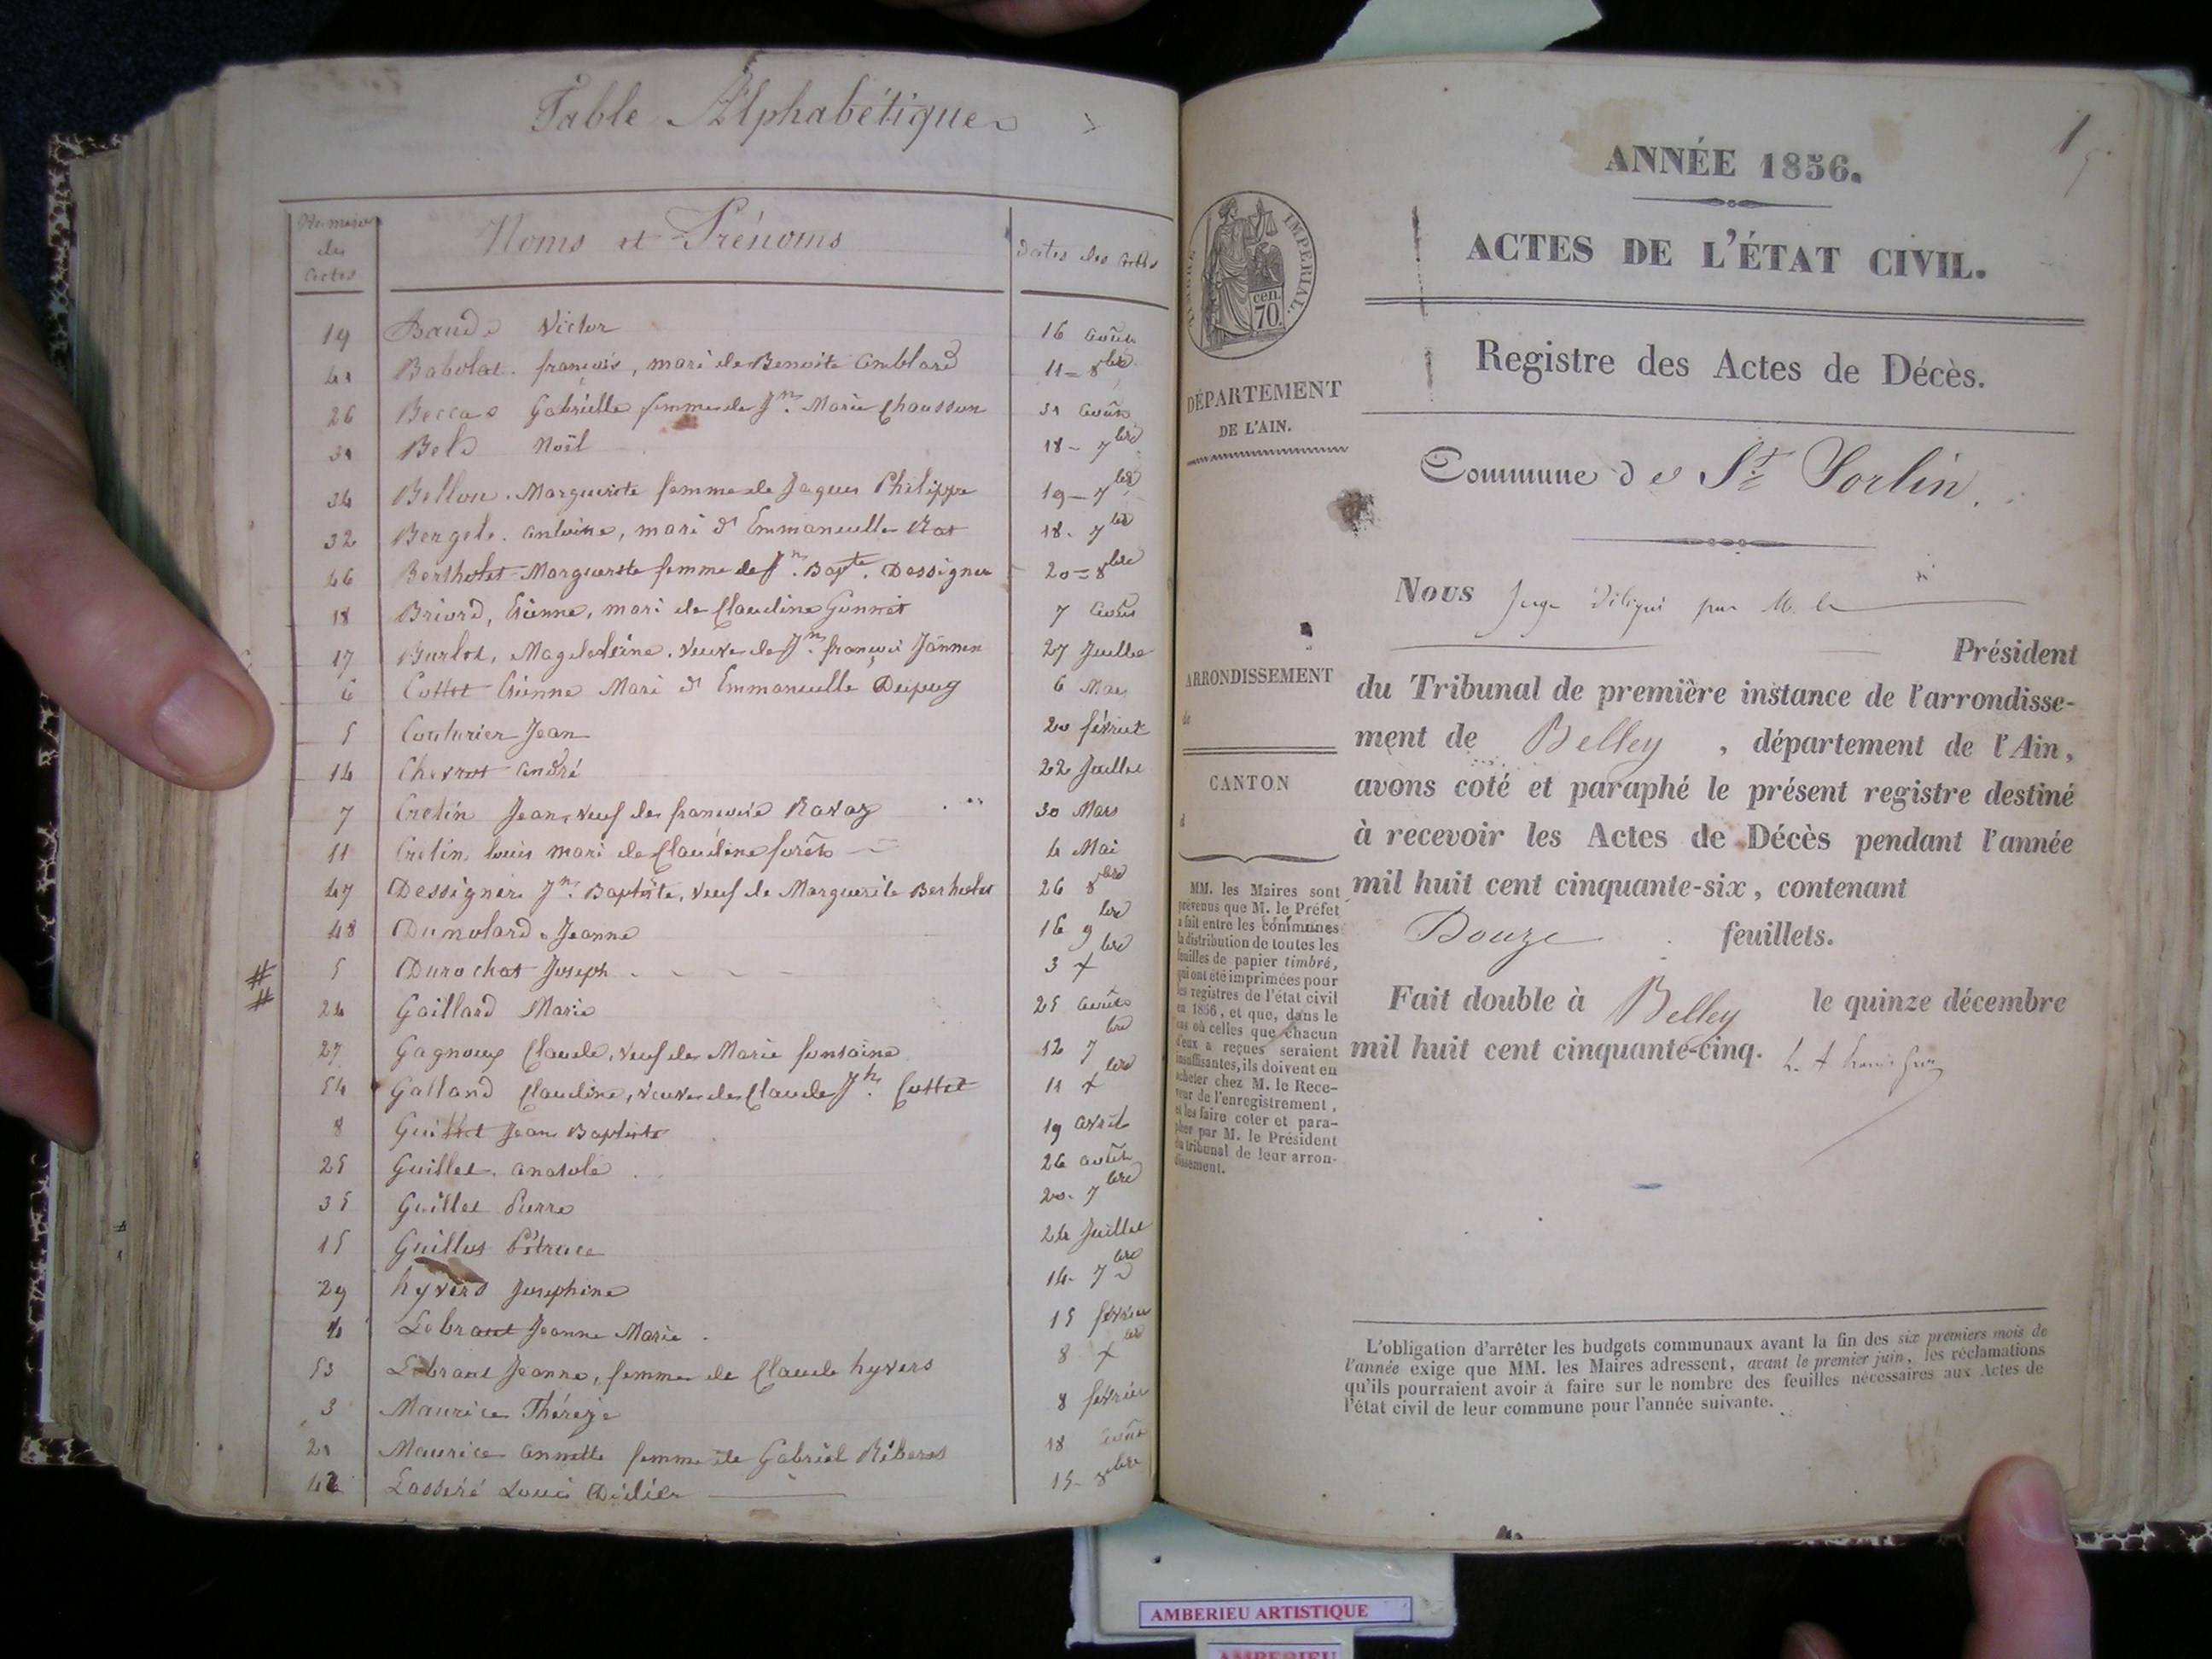 Table Alphabétique
Numéros des actes Noms et Prénoms Dates des actes
19 Baude Victor 16 août
41 Babolat françois, mari de Benoite Amblard 11 - 8bre
26 Beccas Gabrielle femme de Jn. Marie Chausson 31 août
31 Bel Noël 18 - 7bre
34 Bellon Marguerite femme de Jaques Philippe 19 - 7bre
32 Antoine, mari d'Emmanuelle 18. 7bre
46 Bertholet Marguerite femme de Jn. Bapte. Dessigner 20 = 8bre
18 Briord, Etienne, mari de Claudine 7 août
17 Burlot, Magdeleine, veuve de Jn. françois 27 Juillet
6 Cottet Etienne Mari d'Emmanuelle Dupuy 6 Mars
5 Couturier Jean 20 février
14 Chevrot André 22 Juillet
7 Cretin Jean, veuf de françoise Ravaz 30 Mars
11 Cretin louis mari de Claudine forêts 4 Mai
47 Dessigner Jn. Baptiste, veuf de Marguerite Bertholet 26 8bre
48 Dumolard Jeanne 16 9bre
# 5 Durochat Joseph 3 Xbre
# 24 Gaillard Marie 25 août
27 Gagnoux Claude, veuf de Marie fontaine 12 7bre
54 Galland Claudine, veuve de Claude Jh. Cottet 11 Xbre
8 Guillet Jean Baptiste 19 avril
25 Guillet anatole 26 août
35 Guillet Pierre 20. 7bre
15 Guillet 24 Juillet
29 hyvers Josephine 14. 7bre
4 Lobraut Jeanne Marie 15 février
53 Lobraut Jeanne, femme de Claude hyvers 8 Xbre
3 Maurice Thérèze 8 février
21 Maurice annette femme de Gabriel 18 août
42 Lasséré Louis Didier 15 - 8bre
1
ANNÉE 1856.
ACTES DE L'ÉTAT CIVIL.
TIMBRE IMPÉRIAL.
cen.
70.
Registre des Actes de Décès.
DÉPARTEMENT
DE L'AIN.
Commune de St Sorlin.
Nous Juge délégué par M. le
Président
ARRONDISSEMENT
de
CANTON
d
du Tribunal de première instance de l'arrondisse-
ment de Belley, département de l'Ain,
avons coté et paraphé le présent registre destiné
à recevoir les Actes de Décès pendant l'année
mil huit cent cinquante-six, contenant
Douze feuillets.
Fait double à Belley le quinze décembre
mil huit cent cinquante-cinq.
MM. les Maires sont
prévenus que M. le Préfet
a fait entre les communes
la distribution de toutes les
feuilles de papier timbré,
qui ont été imprimées pour
les registres de l'état civil
en 1856, et que, dans le
cas où celles que chacun
d'eux a reçues seraient
insuffisantes, ils doivent en
acheter chez M. le Rece-
veur de l'enregistrement,
et les faire coter et para-
pher par M. le Président
du tribunal de leur arron-
dissement.
L'obligation d'arrêter les budgets communaux avant la fin des six premiers mois de
l'année exige que MM. les Maires adressent, avant le premier juin, les réclamations
qu'ils pourraient avoir à faire sur le nombre des feuilles nécessaires aux Actes de
l'état civil de leur commune pour l'année suivante.
AMBERIEU ARTISTIQUE
AMBERIEU